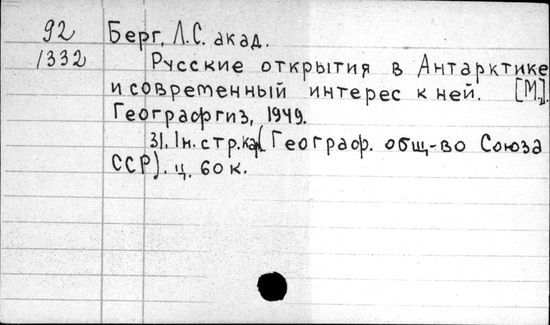 92 Берг, Л.С. акад.
1332 Русские открытия в Антарктике
и современный интерес к ней. [М].
Географгиз, 1949.
31. 1н. стр. кар. (Географ. общ-во Союза
ССР). ц. 60 к.